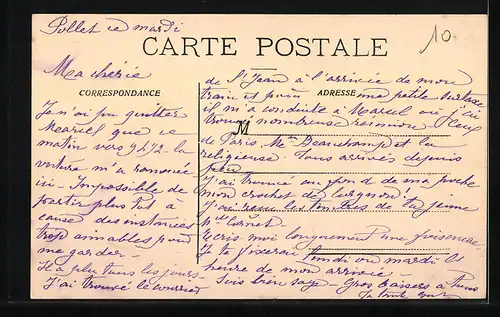 Pollet ce mardi
10.
CARTE POSTALE
CORRESPONDANCE
ADRESSE
M
Ma chérie
Je n'ai pu quitter
Marcel que ce
matin vers 9h1/2. La
voiture m'a ramenée
ici - Impossible de
partir plus tôt à
cause des instances
trop aimables pour
me garder -
Il a plu tous les jours
J'ai trouvé le courrier
de St Jean à l'arrivée de mon
train et puis une petite
il m'a conduite à Marcel où j'ai
trouvé nombreuse réunion
de Paris, Me Deauchamp et la
religieuse. Tous arrivés depuis
peu
J'ai trouvé au fond de ma poche
mon crochet de
J'ai reçu les timbres de la jeune
Lle Cornet
Écris moi longuement
Je te fixerai lundi ou mardi la
heure de mon arrivée -
Sois bien sage - Gros baisers à tous